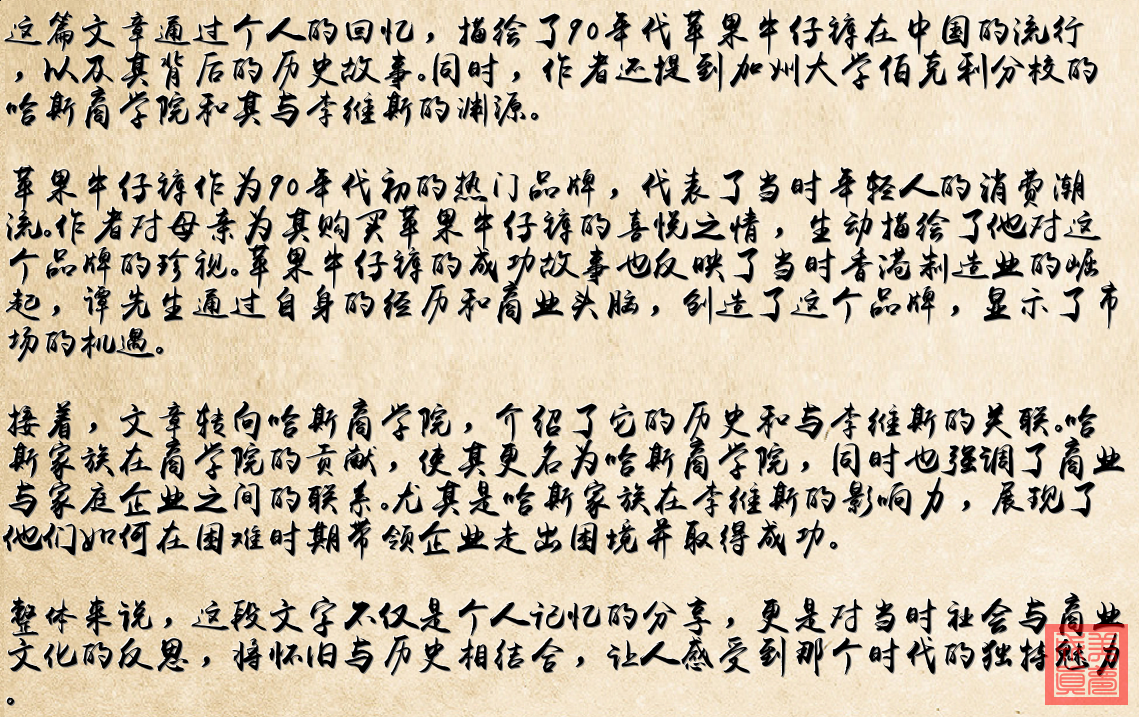 这篇文章通过个人的回忆，描绘了90年代苹果牛仔裤在中国的流行
，以及其背后的历史故事。同时，作者还提到加州大学伯克利分校的
哈斯商学院和其与李维斯的渊源。
苹果牛仔裤作为90年代初的热门品牌，代表了当时年轻人的消费潮
流。作者对母亲为其购买苹果牛仔裤的喜悦之情，生动描绘了他对这
个品牌的珍视。苹果牛仔裤的成功故事也反映了当时香港制造业的崛
起，谭先生通过自身的经历和商业头脑，创造了这个品牌，显示了市
场的机遇。
接着，文章转向哈斯商学院，介绍了它的历史和与李维斯的关联。哈
斯家族在商学院的贡献，使其更名为哈斯商学院，同时也强调了商业
与家庭企业之间的联系。尤其是哈斯家族在李维斯的影响力，展现了
他们如何在困难时期带领企业走出困境并取得成功。
整体来说，这段文字不仅是个人记忆的分享，更是对当时社会与商业
文化的反思，将怀旧与历史相结合，让人感受到那个时代的独特魅力
。